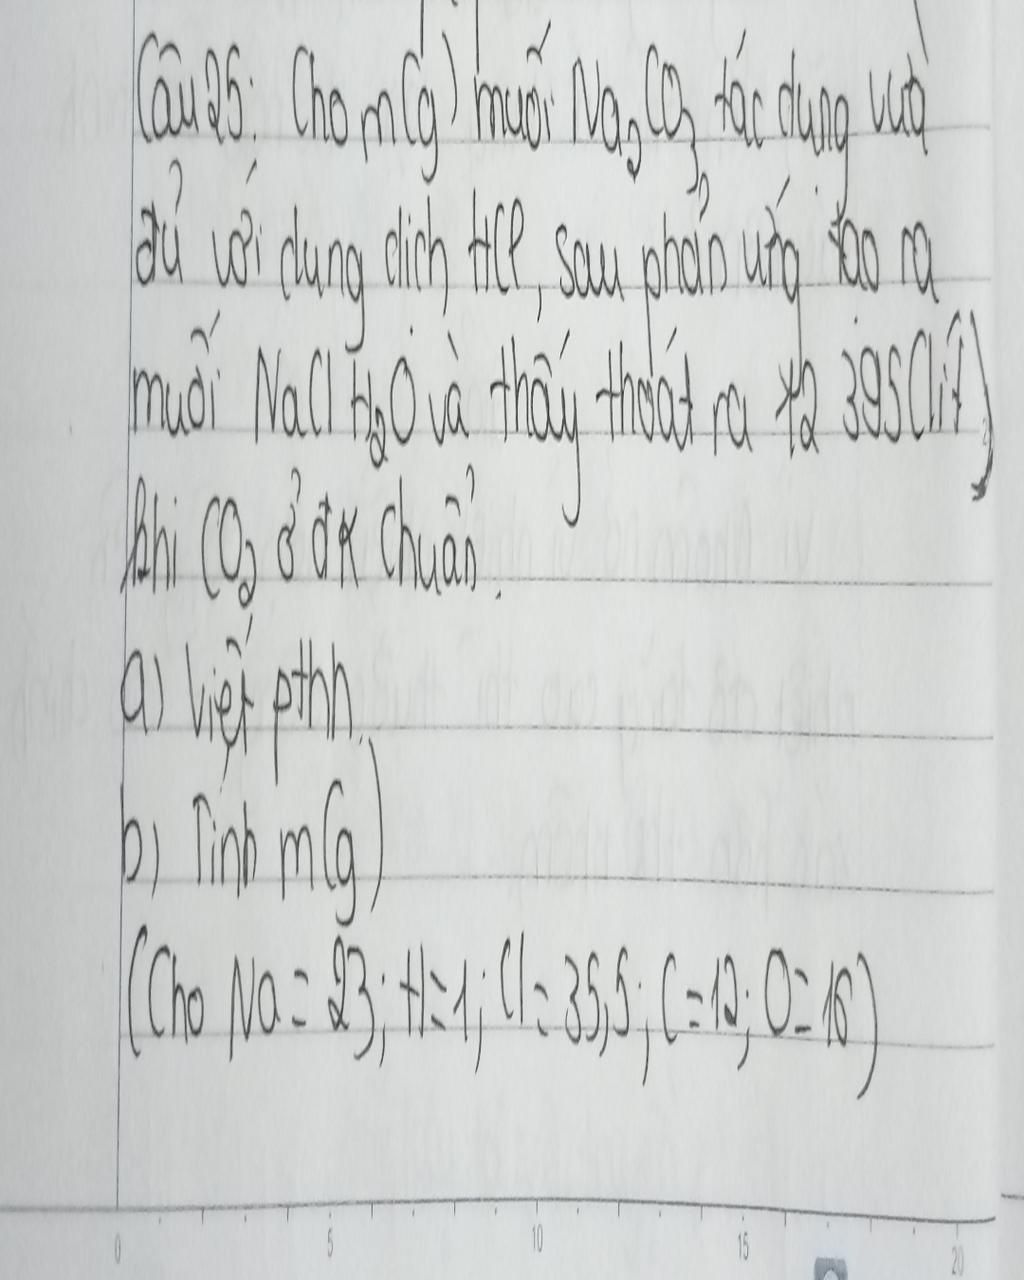 Câu 25: Cho m(g) muối Na2CO3 tác dụng vừa
đủ với dung dịch HCl, sau phản ứng tạo ra
muối NaCl H2O và thấy thoát ra 12 395(lít)
khí CO2 ở đk chuẩn.
a) Viết pthh.
b) Tính m(g)
(Cho Na = 23; H = 1; Cl = 35,5; C = 12; O = 16)
0 5 10 15 20